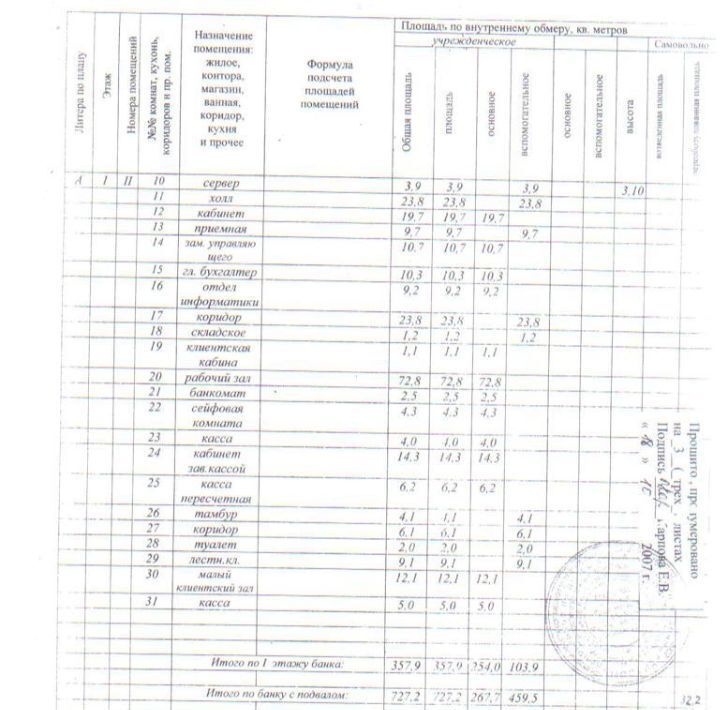 Площадь по внутреннему обмеру, кв. метров
учрежденческое
Самовольно
Литера по плану
Этаж
Номера помещений
№№ комнат, кухонь, коридоров и пр. пом.
Назначение
помещения:
жилое,
контора,
магазин,
ванная,
коридор,
кухня
и прочее
Формула
подсчета
площадей
помещений
Общая площадь
площадь
основное
вспомогательное
основное
вспомогательное
высота
возведенная площадь
А I II 10 сервер 3,9 3,9 3,9 3,10
11 холл 23,8 23,8 23,8
12 кабинет 19,7 19,7 19,7
13 приемная 9,7 9,7 9,7
14 зам. управляю 10,7 10,7 10,7
щего
15 гл. бухгалтер 10,3 10,3 10,3
16 отдел 9,2 9,2 9,2
информатики
17 коридор 23,8 23,8 23,8
18 складское 1,2 1,2 1,2
19 клиентская 1,1 1,1 1,1
кабина
20 рабочий зал 72,8 72,8 72,8
21 банкомат 2,5 2,5 2,5
22 сейфовая 4,3 4,3 4,3
комната
23 касса 4,0 4,0 4,0
24 кабинет 14,3 14,3 14,3
зав.кассой
25 касса 6,2 6,2 6,2
пересчетная
26 тамбур 4,1 4,1 4,1
27 коридор 6,1 6,1 6,1
28 туалет 2,0 2,0 2,0
29 лестн.кл. 9,1 9,1 9,1
30 малый 12,1 12,1 12,1
клиентский зал
31 касса 5,0 5,0 5,0
Итого по I этажу банка: 357,9 357,9 254,0 103,9
Итого по банку с подвалом: 727,2 727,2 267,7 459,5 32,2
Прошито, пронумеровано
на 3 ( трех ) листах
Подпись Е.В.
« » 2007 г.